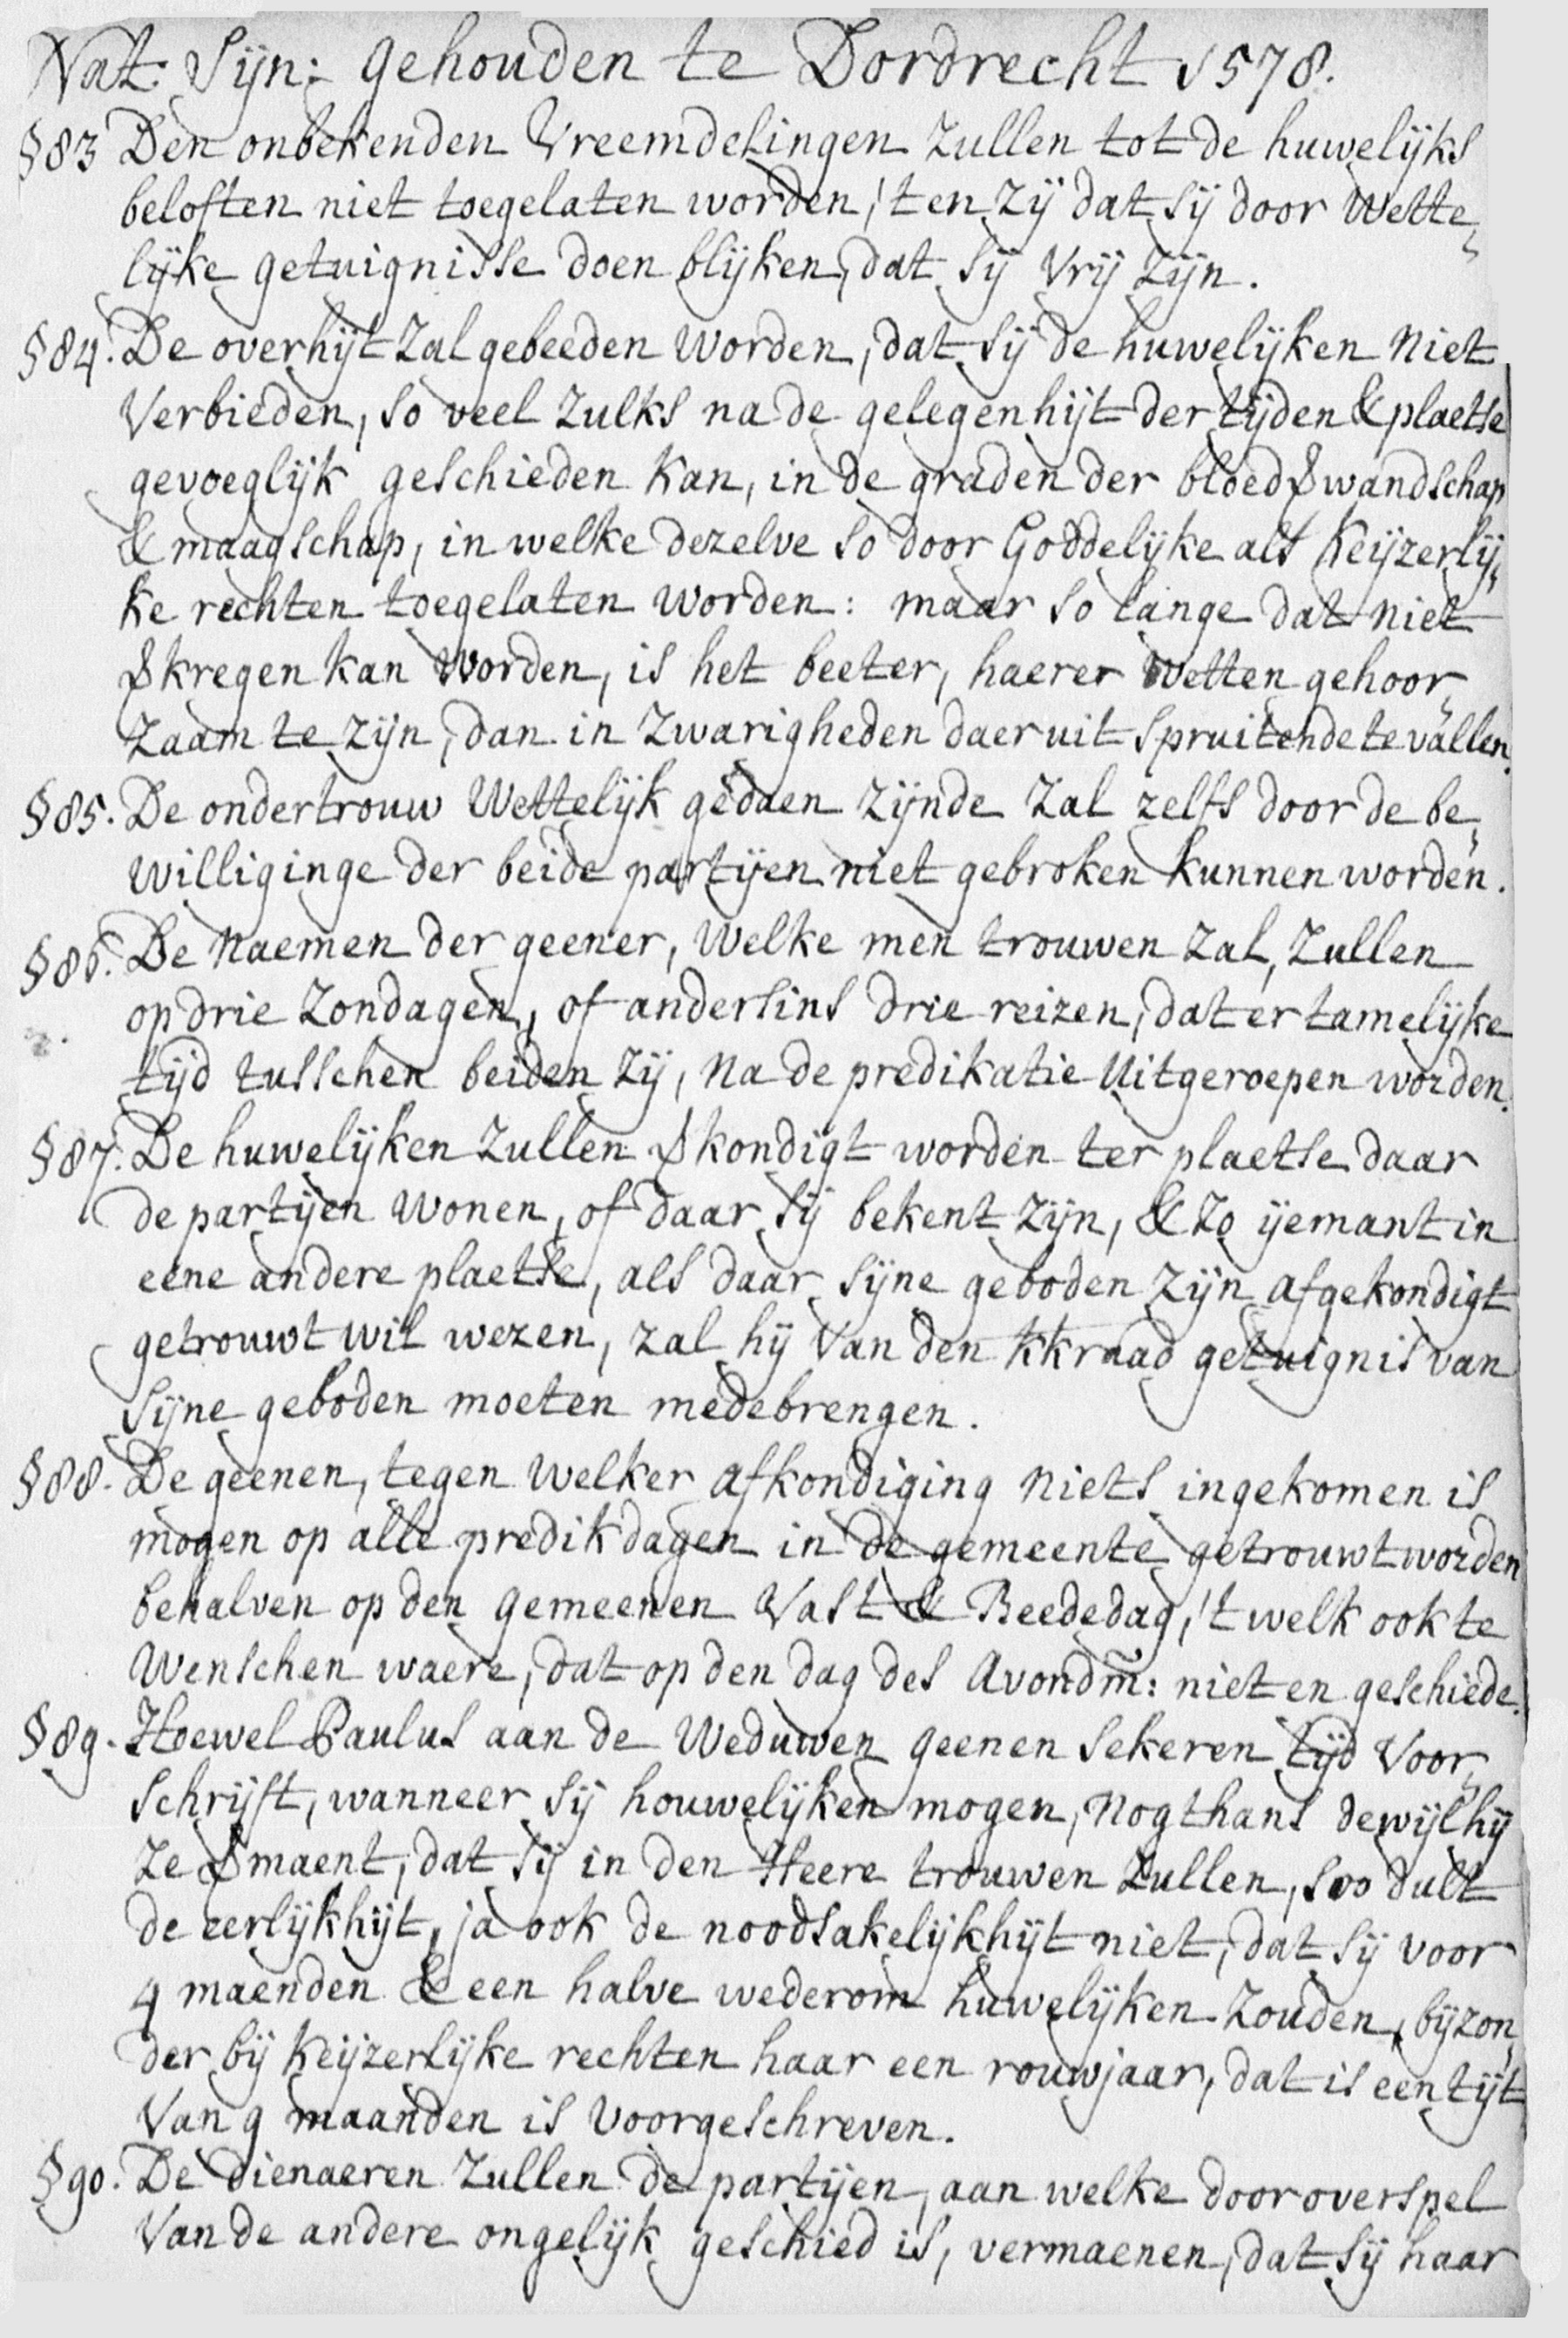 Nat: Sijn: gehouden te Dordrecht 1578.
§83 Den onbekenden Vreemdelingen zullen tot de huwelijks
beloften niet toegelaten worden, 't en zij dat sij door wette„
lijke getuignisse doen blijken, dat sij vrij zijn.
§84. De overhijt zal gebeeden worden, dat sij de huwelijken niet
verbieden, so veel zulks na de gelegenhijt der tijden & plaetse
gevoeglijk geschieden kan, in de graden der bloed₰wandschap
& maagschap, in welke dezelve so door Goddelijke als Keijzerlij„
ke rechten toegelaten worden: maar so lange dat niet
₰kregen kan worden, is het beeter, haerer wetten gehoor„
zaam te zijn, dan in zwarigheden daer uit spruitende te vallen.
§85. De ondertrouw wettelijk gedaen zijnde zal zelfs door de be„
williginge der beide partijen niet gebroken kunnen worden.
§86. De naemen der geener, welke men trouwen zal, zullen
op drie zondagen, of andersins drie reizen, dat er tamelijke
tijd tusschen beiden zij, na de predikatie uitgeroepen worden.
§87. De huwelijken zullen ₰kondigt worden ter plaetse daar
de partijen wonen, of daar sij bekent zijn, & zo ijemant in
eene andere plaetse, als daar sijne geboden zijn afgekondigt
getrouwt wil wezen, zal hij van den kkraad getuignis van
sijne geboden moeten medebrengen.
§88. De geenen, tegen welker afkondiging niets ingekomen is
mogen op alle predikdagen in de gemeente getrouwt worden
behalven op den gemeenen Vast & Beededag, 't welk ook te
wenschen waere, dat op den dag des Avondm̄: niet en geschiede.
§89. Hoewel Paulus aan de Weduwen geenen sekeren tijd voor„
schrijft, wanneer sij houwelijken mogen, nogthans dewijl hij
ze ₰maent, dat sij in den Heere trouwen zullen, soo dult
de eerlijkhijt, ja ook de noodsakelijkhijt niet, dat sij voor
4 maenden & een halve wederom huwelijken zouden, bijzon„
der bij Keijzerlijke rechten haar een rouwjaar, dat is een tijt
van 9 maanden is voorgeschreven.
§90. De dienaeren zullen de partijen, aan welke door overspel
van de andere ongelijk geschied is, vermaenen, dat sij haar